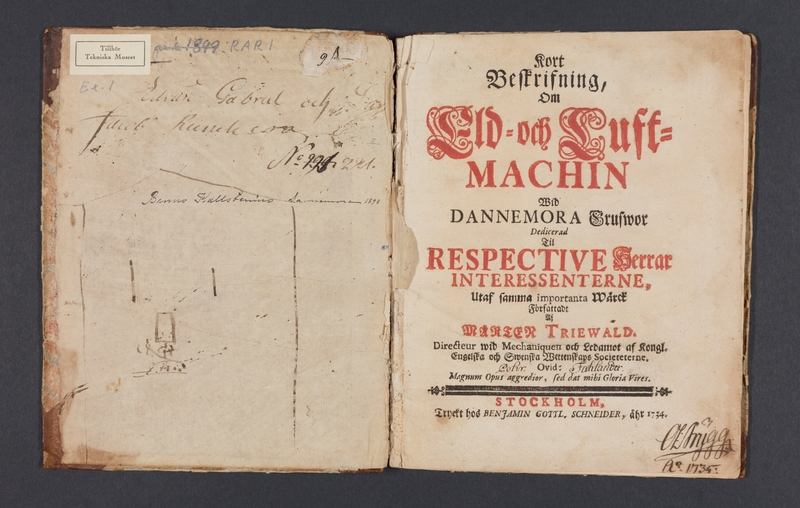 Tillhör
Tekniska Museet
1899. RARI
91
Ex. 1
Gabriel och
Jacob
No. 221. 221.
Benno Hallstenius Dannemora 1898
Kort
Beskrifning,
Om
Eld- och Luft-
MACHIN
Wid
DANNEMORA Grufwor
Dedicerad
Til
RESPECTIVE Herrar
INTERESSENTERNE,
Utaf samma importanta Wärck
Författadt
Af
MÅRTEN TRIEWALD.
Directeur wid Mechaniquen och Ledamot af Kongl.
Engelska och Swenska Wettenskaps Societeterne.
Ovid:
Magnum Opus aggredior, sed das mihi Gloria Vires.
STOCKHOLM,
Tryckt hos BENJAMIN GOTTL. SCHNEIDER, åhr 1734.
Ao. 1735.